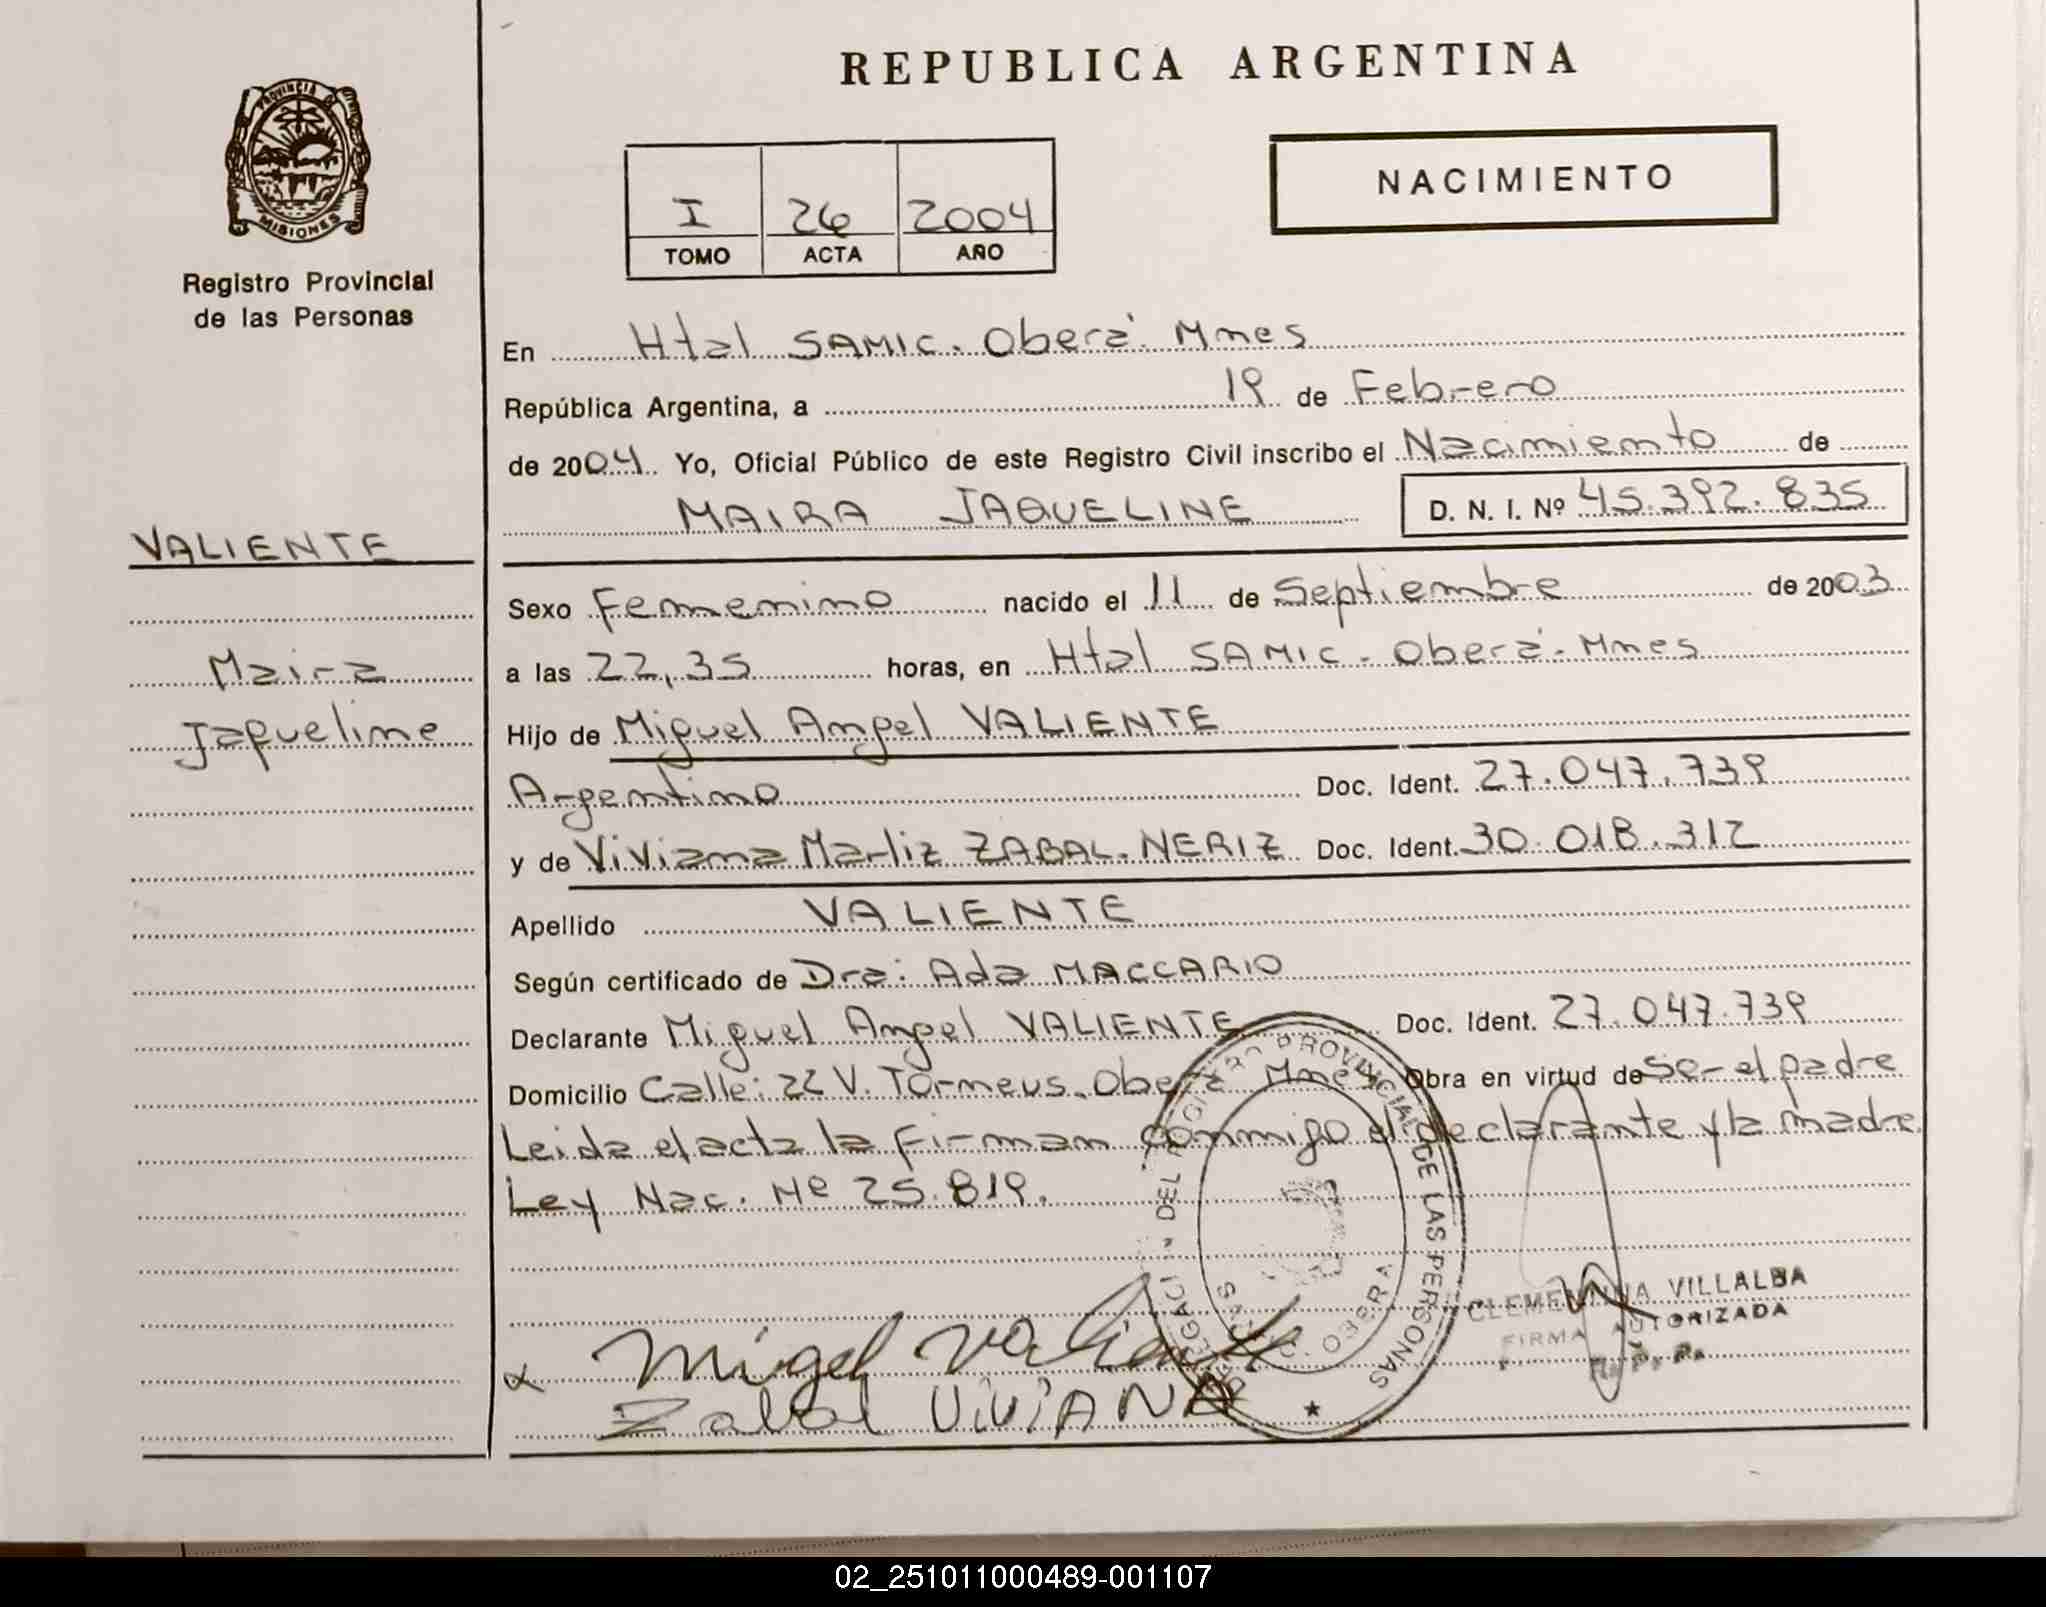 REPUBLICA ARGENTINA
PROVINCIA DE
MISIONES
Registro Provincial
de las Personas
NACIMIENTO
I 26 2004
TOMO ACTA AÑO
En Htal SAMIC. Oberá. Mnes
República Argentina, a 19 de Febrero
de 2004. Yo, Oficial Público de este Registro Civil inscribo el Nacimiento de
MAIRA JAQUELINE D. N. I. Nº 45.392.835
VALIENTE
Maira
Jaqueline
Sexo Femenino nacido el 11 de Septiembre de 2003
a las 22,35 horas, en Htal SAMIC. Oberá. Mnes
Hijo de Miguel Angel VALIENTE
Argentino Doc. Ident. 27.047.739
y de Viviana Marliz ZABAL. NERIZ Doc. Ident. 30.018.312
Apellido VALIENTE
Según certificado de Dra: Ada MACCARIO
Declarante Miguel Angel VALIENTE Doc. Ident. 27.047.739
Domicilio Calle: 22 V. Torneus. Oberá Mnes Obra en virtud de Ser el padre
Leida el acta la firman conmigo el declarante y la madre
Ley Nac. Nº 25.819.
REGISTRO PROVINCIAL DE LAS PERSONAS
OBERA
CLEMENTINA VILLALBA
FIRMA AUTORIZADA
Migel Valiente
Zabal ViViANA
02_251011000489-001107